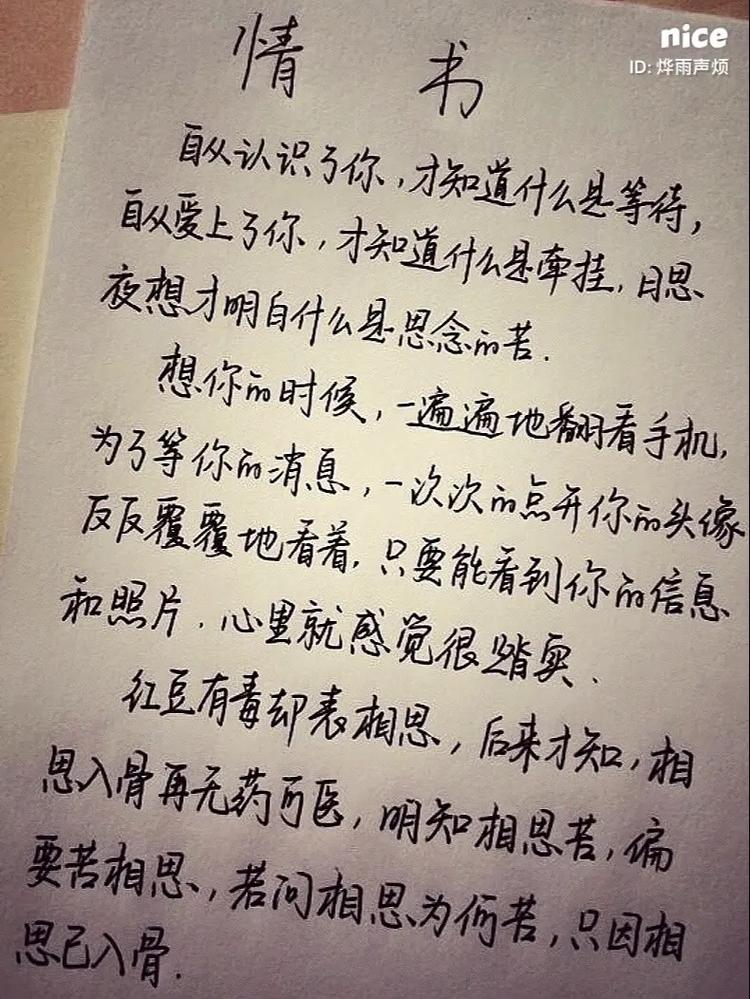 nice
ID: 烨雨声烦
情书
自从认识了你,才知道什么是等待,
自从爱上了你,才知道什么是牵挂,日思
夜想才明白什么是思念的苦.
想你的时候,一遍遍地翻看手机,
为了等你的消息,一次次的点开你的头像
反反覆覆地看着,只要能看到你的信息
和照片.心里就感觉很踏实.
红豆有毒却表相思,后来才知,相
思入骨再无药可医,明知相思苦,偏
要苦相思,若问相思为何苦,只因相
思已入骨.